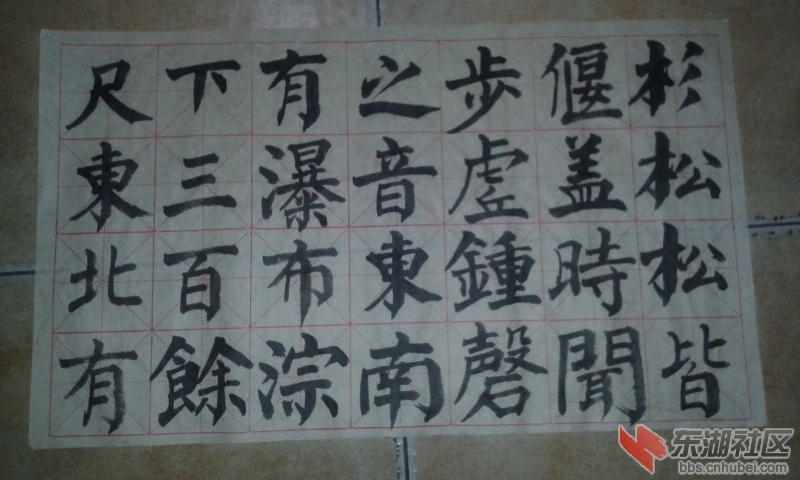 杉松松皆
偃盖時聞
步虛鍾磬
之音東南
有瀑布淙
下三百餘
尺東北有
东湖社区
bbs.cnhubei.com